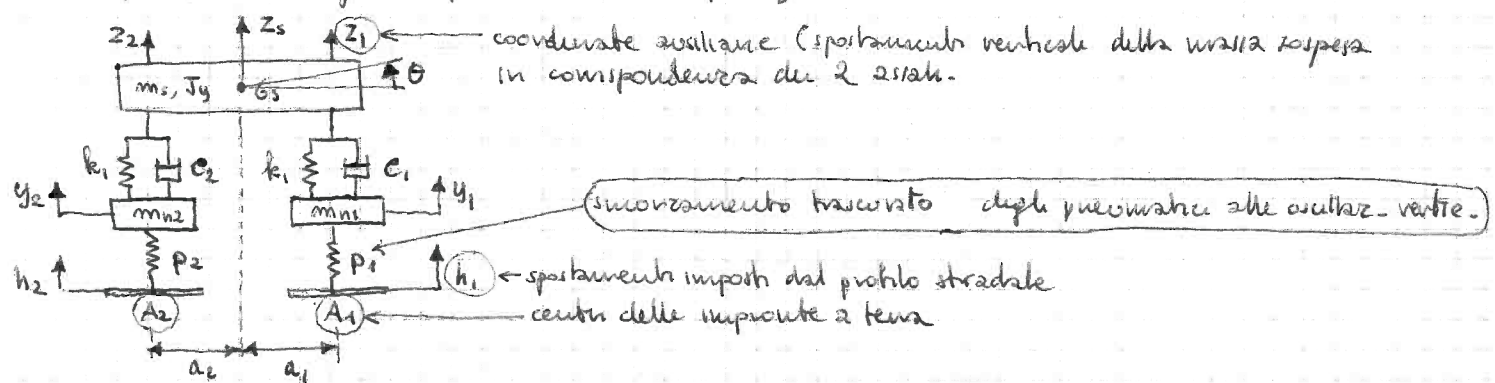 z2 zs z1 coordinate ausiliarie (spostamenti verticale della massa sospesa
in corrispondenza dei 2 assali.
ms, Jy Gs θ
k1 c2 k1 c1
y2 mn2 mn1 y1
smorzamento trascurato degli pneumatici alle oscillaz. vertic.
h2 p2 p1 h1 spostamenti imposti dal profilo stradale
A2 A1 centri delle impronte a terra
a2 a1